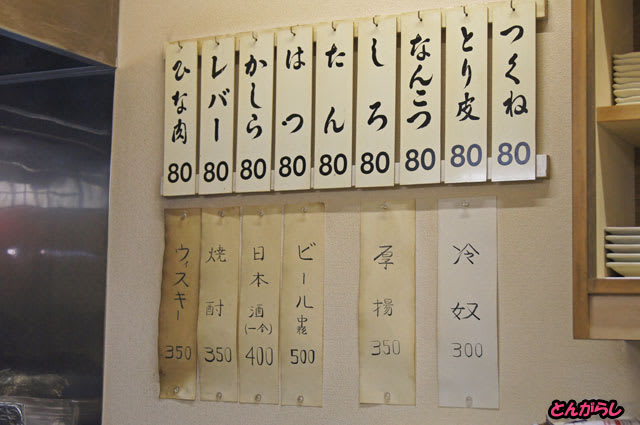 つくね 80
とり皮 80
なんこつ 80
しろ 80
たん 80
はつ 80
かしら 80
レバー 80
ひな肉 80
冷奴 300
厚揚 350
ビール 中瓶 500
日本酒(一合) 400
焼酎 350
ウィスキー 350
とんがらし